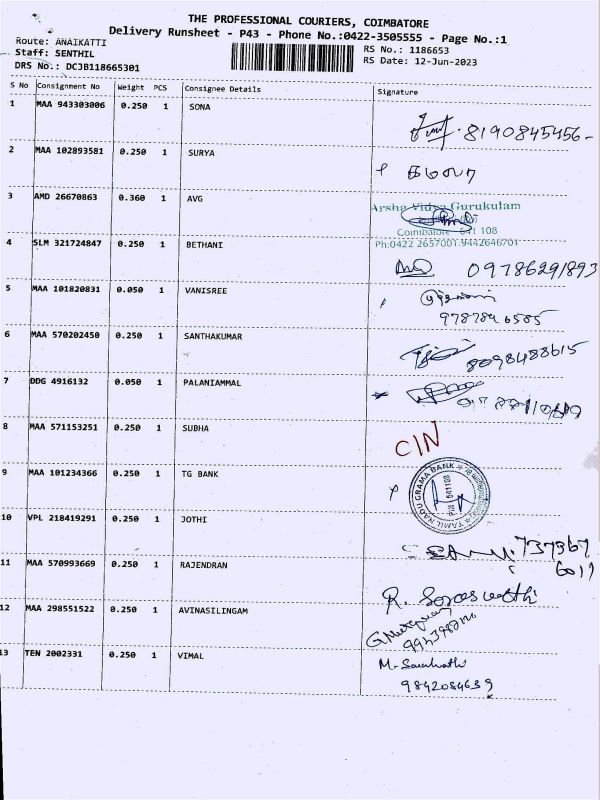 THE PROFESSIONAL COURIERS, COIMBATORE
Delivery Runsheet - P43 - Phone No.:0422-3505555 - Page No.:1
Route: ANAIKATTI
RS No.: 1186653
Staff: SENTHIL
RS Date: 12-Jun-2023
DRS No.: DCJB118665301
S No Consignment No Weight PCS Consignee Details Signature
1 MAA 943303006 0.250 1 SONA
8190845456
2 MAA 102893581 0.250 1 SURYA
3 AMD 26670863 0.360 1 AVG
Arsha Vidya Gurukulam
Coimbatore 641 108
Ph:0422 2657001.9442646701
4 SLM 321724847 0.250 1 BETHANI
09786291893
5 MAA 101820831 0.050 1 VANISREE
6 MAA 570202450 0.250 1 SANTHAKUMAR
8098488615
7 DDG 4916132 0.050 1 PALANIAMMAL
8 MAA 571153251 0.250 1 SUBHA
C/N
9 MAA 101234366 0.250 1 TG BANK
TAMIL NADU GRAMA BANK
PIN 641108
10 VPL 218419291 0.250 1 JOTHI
737367
6011
11 MAA 570993669 0.250 1 RAJENDRAN
R. Saraswathi
12 MAA 298551522 0.250 1 AVINASILINGAM
13 TEN 2002331 0.250 1 VIMAL
9842084639